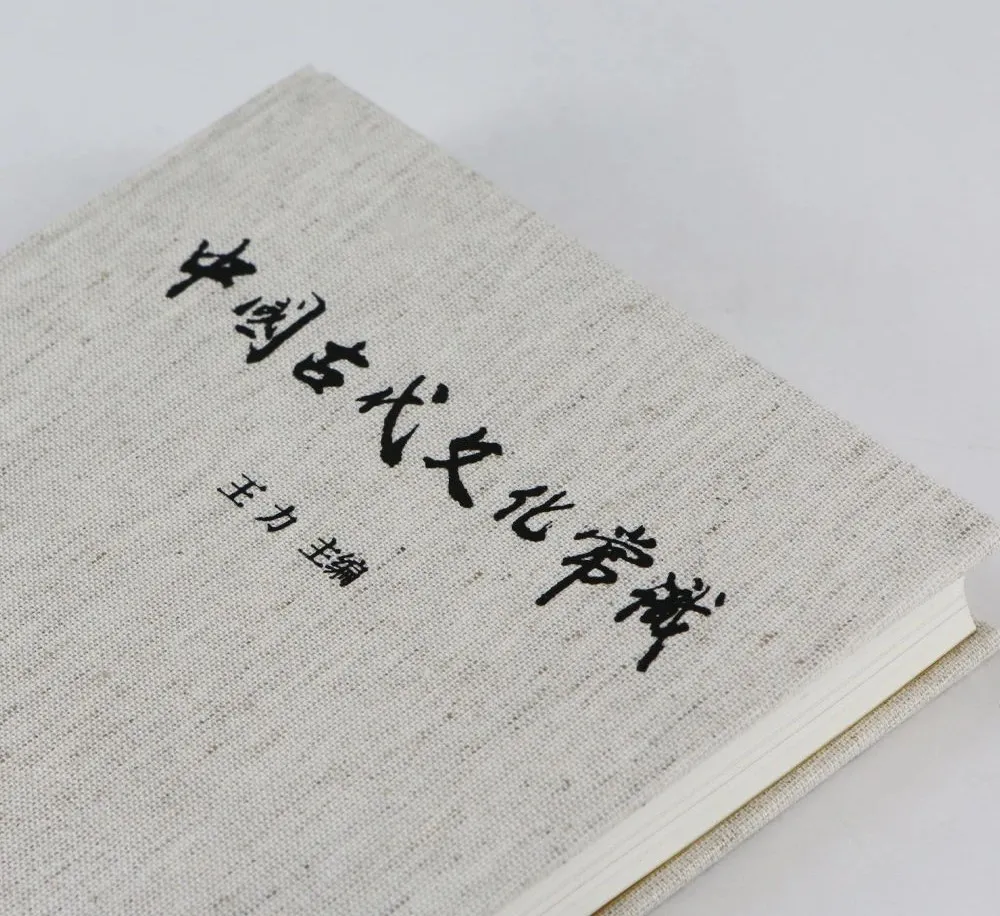 中國古代文化常識
王力 主编